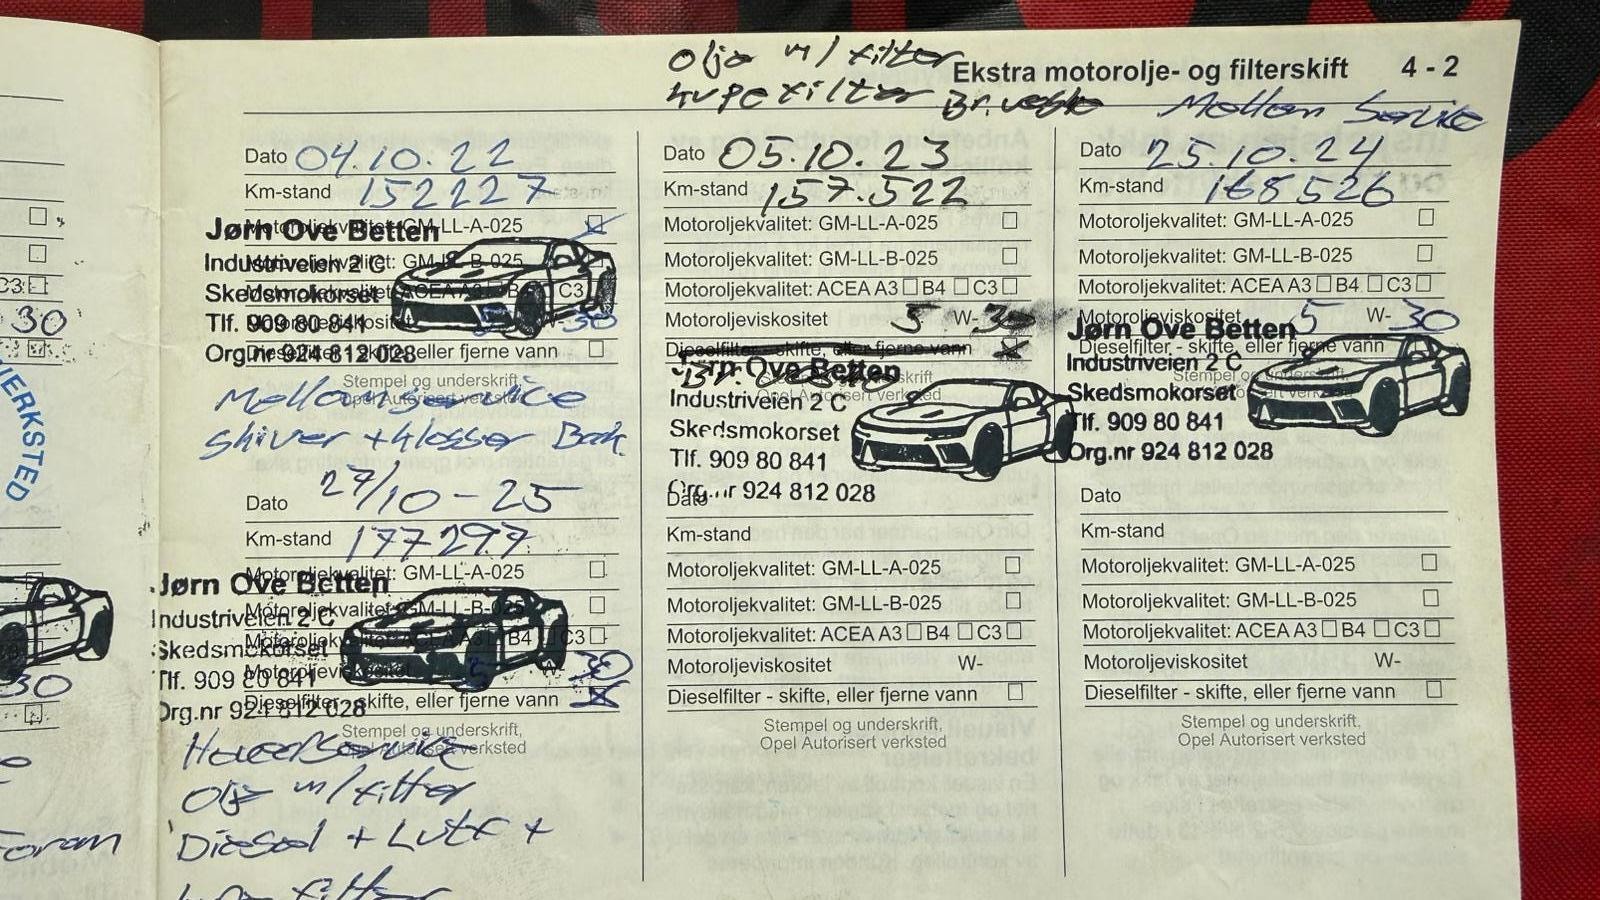 Olje m/filter
kupefilter Br.veske
Ekstra motorolje- og filterskift 4 - 2
Mellom Service
Dato 04.10.22
Km-stand 152227
Motoroljekvalitet: GM-LL-A-025
Motoroljekvalitet: GM-LL-B-025
Motoroljekvalitet: ACEA A3 B4 C3
Motoroljeviskositet 5 W-30
Dieselfilter - skifte, eller fjerne vann
Stempel og underskrift,
Opel Autorisert verksted
Jørn Ove Betten
Industriveien 2 C
Skedsmokorset
Tlf. 909 80 841
Org.nr 924 812 028
Mellomservice
skiver + klosser Bak.
Dato 05.10.23
Km-stand 157.522
Motoroljekvalitet: GM-LL-A-025
Motoroljekvalitet: GM-LL-B-025
Motoroljekvalitet: ACEA A3 B4 C3
Motoroljeviskositet 5 W-30
Dieselfilter - skifte, eller fjerne vann
Stempel og underskrift,
Opel Autorisert verksted
Jørn Ove Betten
Industriveien 2 C
Skedsmokorset
Tlf. 909 80 841
Org.nr 924 812 028
Dato 25.10.24
Km-stand 168526
Motoroljekvalitet: GM-LL-A-025
Motoroljekvalitet: GM-LL-B-025
Motoroljekvalitet: ACEA A3 B4 C3
Motoroljeviskositet 5 W-30
Dieselfilter - skifte, eller fjerne vann
Stempel og underskrift,
Opel Autorisert verksted
Jørn Ove Betten
Industriveien 2 C
Skedsmokorset
Tlf. 909 80 841
Org.nr 924 812 028
Dato 29/10-25
Km-stand 177297
Motoroljekvalitet: GM-LL-A-025
Motoroljekvalitet: GM-LL-B-025
Motoroljekvalitet: ACEA A3 B4 C3
Motoroljeviskositet 5 W-30
Dieselfilter - skifte, eller fjerne vann
Stempel og underskrift,
Opel Autorisert verksted
Jørn Ove Betten
Industriveien 2 C
Skedsmokorset
Tlf. 909 80 841
Org.nr 924 812 028
Hovedservice
Olje m/filter
Diesel + Luft +
filter
Dato
Km-stand
Motoroljekvalitet: GM-LL-A-025
Motoroljekvalitet: GM-LL-B-025
Motoroljekvalitet: ACEA A3 B4 C3
Motoroljeviskositet W-
Dieselfilter - skifte, eller fjerne vann
Stempel og underskrift,
Opel Autorisert verksted
Dato
Km-stand
Motoroljekvalitet: GM-LL-A-025
Motoroljekvalitet: GM-LL-B-025
Motoroljekvalitet: ACEA A3 B4 C3
Motoroljeviskositet W-
Dieselfilter - skifte, eller fjerne vann
Stempel og underskrift,
Opel Autorisert verksted
C3
30
30